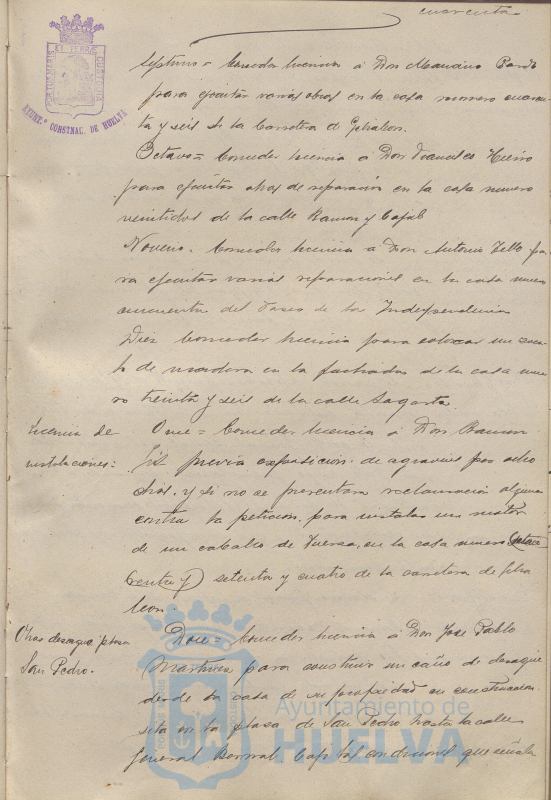 cuarenta
AYUNT.º CONSTNAL. DE HUELVA
Septimo = Conceder licencia á Don Mauricio Pardo
para ejecutar varias obras en la casa numero cuaren-
ta y seis de la Carretera de Gibraleon.
Octavo = Conceder licencia á Don Francisco Hierro
para ejecutar obras de reparación en la casa numero
veintidos de la calle Ramon y Cajal
Noveno = Conceder licencia á Don Antonio Tello pa-
ra ejecutar varias reparaciones en la casa numero
cincuenta del Paseo de la Independencia
Diez Conceder licencia para colocar un zoca-
lo de madera en la fachada de la casa nume
ro treinta y seis de la calle Sagasta.
Licencia de
instalaciones:
Once = Conceder licencia á Don Ramon
Gil previa exposicion de agravios por ocho
dias, y si no se presentara reclamación alguna
contra la peticion, para instalar un motor
de un caballo de fuerza, en la casa numero
setenta y cuatro de la carretera de Gibra
leon.
Obras desagüe plaza
San Pedro.
Doce = Conceder licencia á Don Jose Pablo
Martinez para construir un caño de desagüe
desde la casa de su propiedad en construcción
sita en la plaza de San Pedro hasta la calle
General Bernal bajo las condiciones que señala
Ayuntamiento de
HUELVA